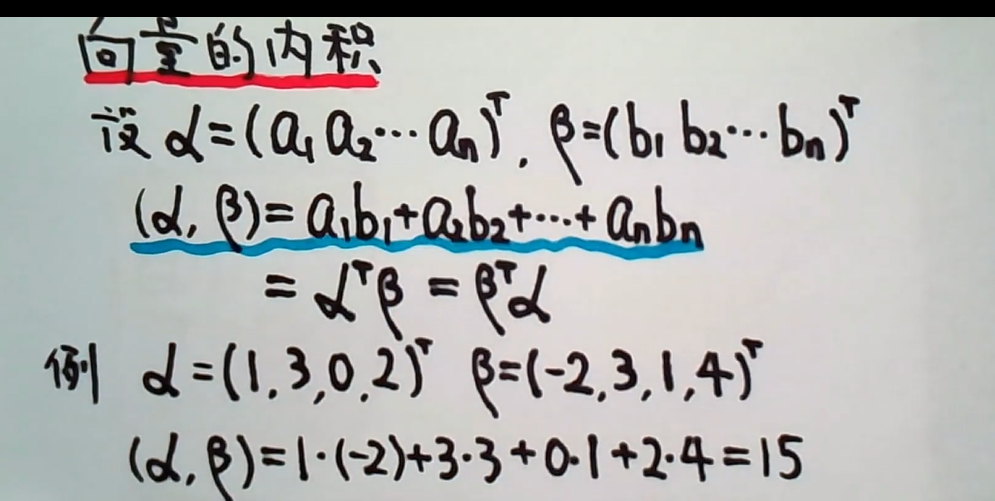 向量的内积
设 α=(a₁ a₂⋯ aₙ)ᵀ. β=(b₁ b₂⋯ bₙ)ᵀ
(α, β)= a₁b₁+a₂b₂+⋯+ aₙbₙ
= αᵀβ = βᵀα
例 α=(1,3,0,2)ᵀ β=(-2,3,1,4)ᵀ
(α,β)=1·(-2)+3·3+0·1+2·4=15